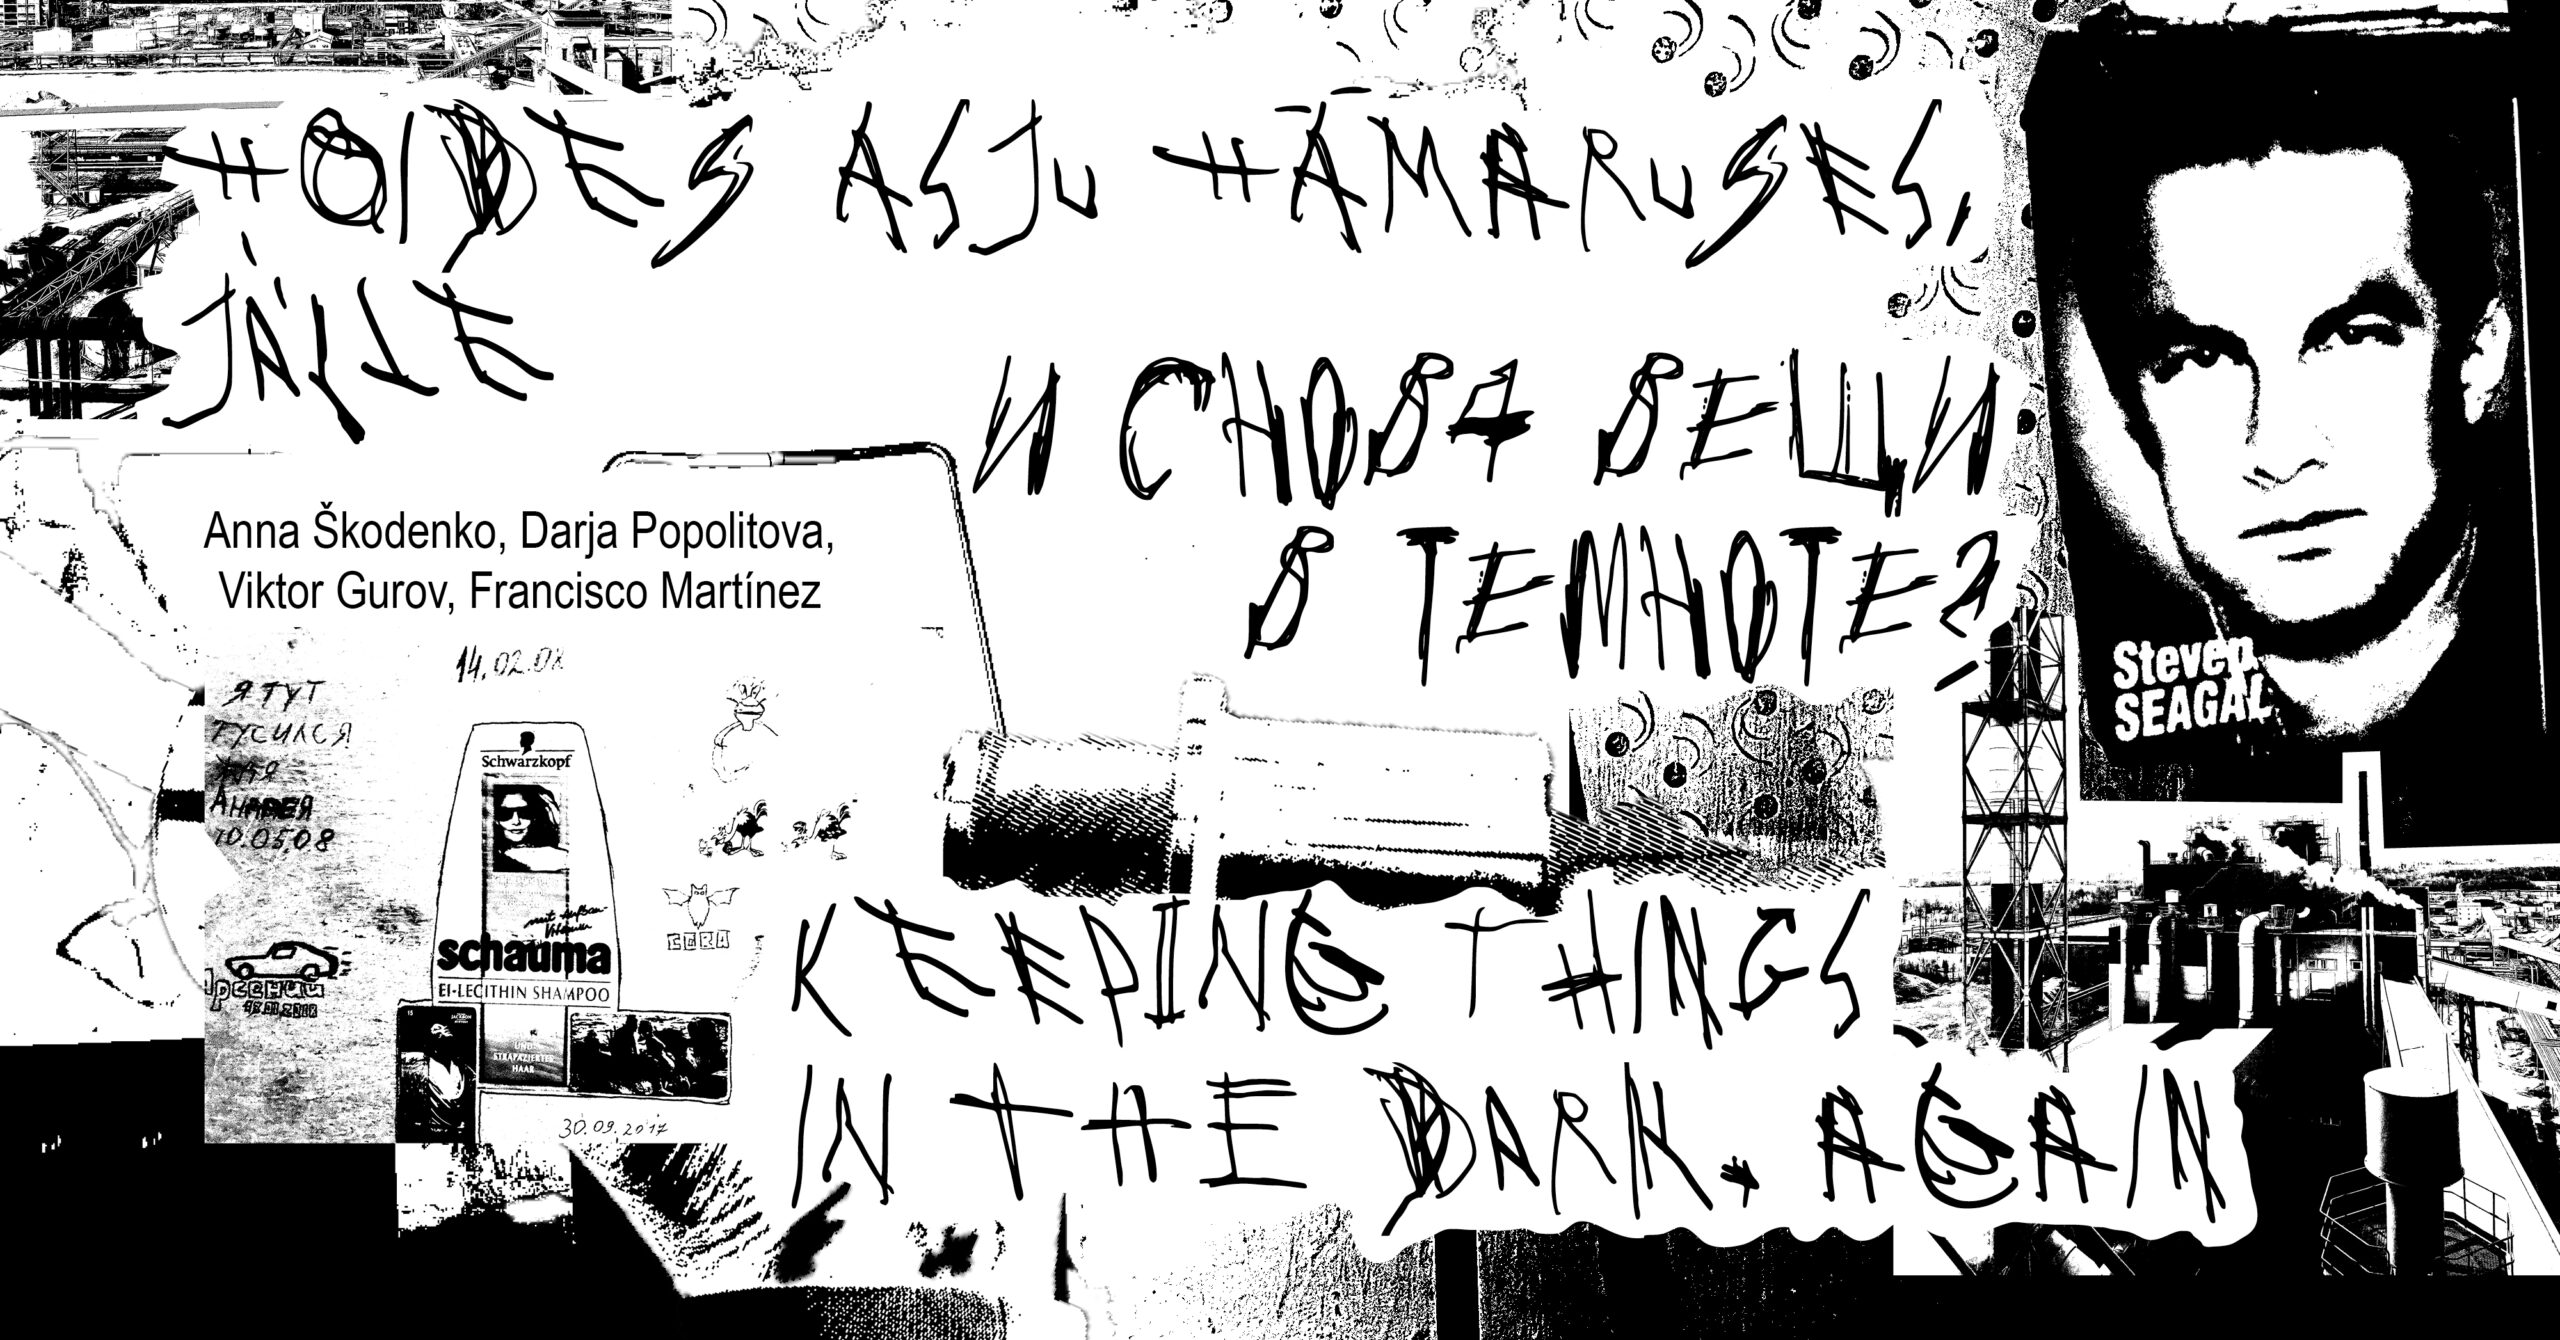 HOIDES ASJU HÄMARUSES,
JÄLLE
И СНОВА ВЕЩИ
В ТЕМНОТЕ?
Anna Škodenko, Darja Popolitova,
Viktor Gurov, Francisco Martínez
Steven
SEAGAL
14.02.08
Я ТУТ
ТУСИЛСЯ
АНДРЕЯ
10.05.08
Schwarzkopf
mit Aufbau-
Vitaminen
schauma
EI-LECITHIN SHAMPOO
UND
STRAPAZIERTES
HAAR
15
JACKSON
30.09.2017
KEEPING THINGS
IN THE DARK. AGAIN